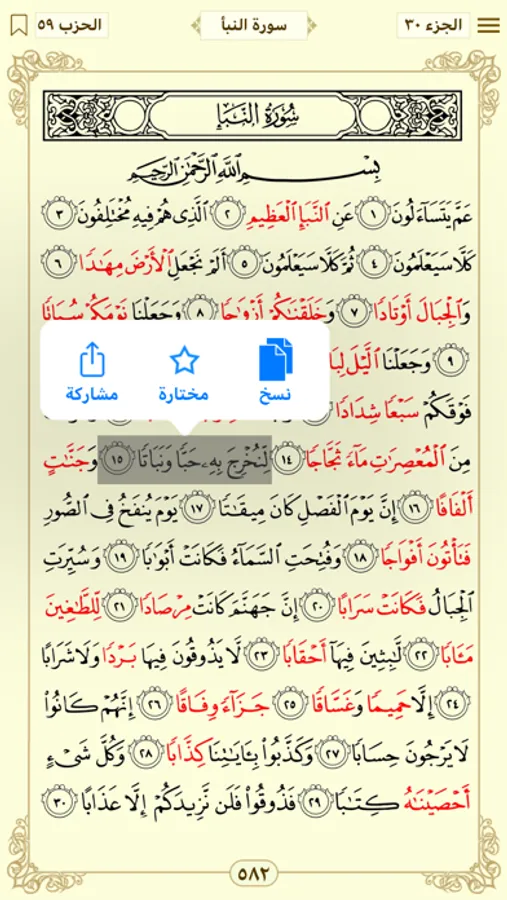 الجزء ٣٠
سورة النبأ
الحزب ٥٩
سُورَةُ النَّبَإِ
بِسْمِ اللَّهِ الرَّحْمَٰنِ الرَّحِيمِ
عَمَّ يَتَسَآءَلُونَ ١ عَنِ النَّبَإِ الْعَظِيمِ ٢ الَّذِى هُمْ فِيهِ مُخْتَلِفُونَ ٣
كَلَّا سَيَعْلَمُونَ ٤ ثُمَّ كَلَّا سَيَعْلَمُونَ ٥ أَلَمْ نَجْعَلِ الْأَرْضَ مِهَٰدًا ٦
وَالْجِبَالَ أَوْتَادًا ٧ وَخَلَقْنَٰكُمْ أَزْوَٰجًا ٨ وَجَعَلْنَا نَوْمَكُمْ سُبَاتًا
٩ وَجَعَلْنَا الَّيْلَ
مشاركة
مختارة
نسخ
فَوْقَكُمْ سَبْعًا شِدَادًا
مِنَ الْمُعْصِرَٰتِ مَآءً ثَجَّاجًا ١٤ لِّنُخْرِجَ بِهِۦ حَبًّا وَنَبَاتًا ١٥ وَجَنَّٰتٍ
أَلْفَافًا ١٦ إِنَّ يَوْمَ الْفَصْلِ كَانَ مِيقَٰتًا ١٧ يَوْمَ يُنفَخُ فِى الصُّورِ
فَتَأْتُونَ أَفْوَاجًا ١٨ وَفُتِحَتِ السَّمَآءُ فَكَانَتْ أَبْوَٰبًا ١٩ وَسُيِّرَتِ
الْجِبَالُ فَكَانَتْ سَرَابًا ٢٠ إِنَّ جَهَنَّمَ كَانَتْ مِرْصَادًا ٢١ لِّلطَّٰغِينَ
مَـَٔابًا ٢٢ لَّٰبِثِينَ فِيهَآ أَحْقَابًا ٢٣ لَّا يَذُوقُونَ فِيهَا بَرْدًا وَلَا شَرَابًا
٢٤ إِلَّا حَمِيمًا وَغَسَّاقًا ٢٥ جَزَآءً وِفَاقًا ٢٦ إِنَّهُمْ كَانُوا۟
لَا يَرْجُونَ حِسَابًا ٢٧ وَكَذَّبُوا۟ بِـَٔايَٰتِنَا كِذَّابًا ٢٨ وَكُلَّ شَىْءٍ
أَحْصَيْنَٰهُ كِتَٰبًا ٢٩ فَذُوقُوا۟ فَلَن نَّزِيدَكُمْ إِلَّا عَذَابًا ٣٠
٥٨٢